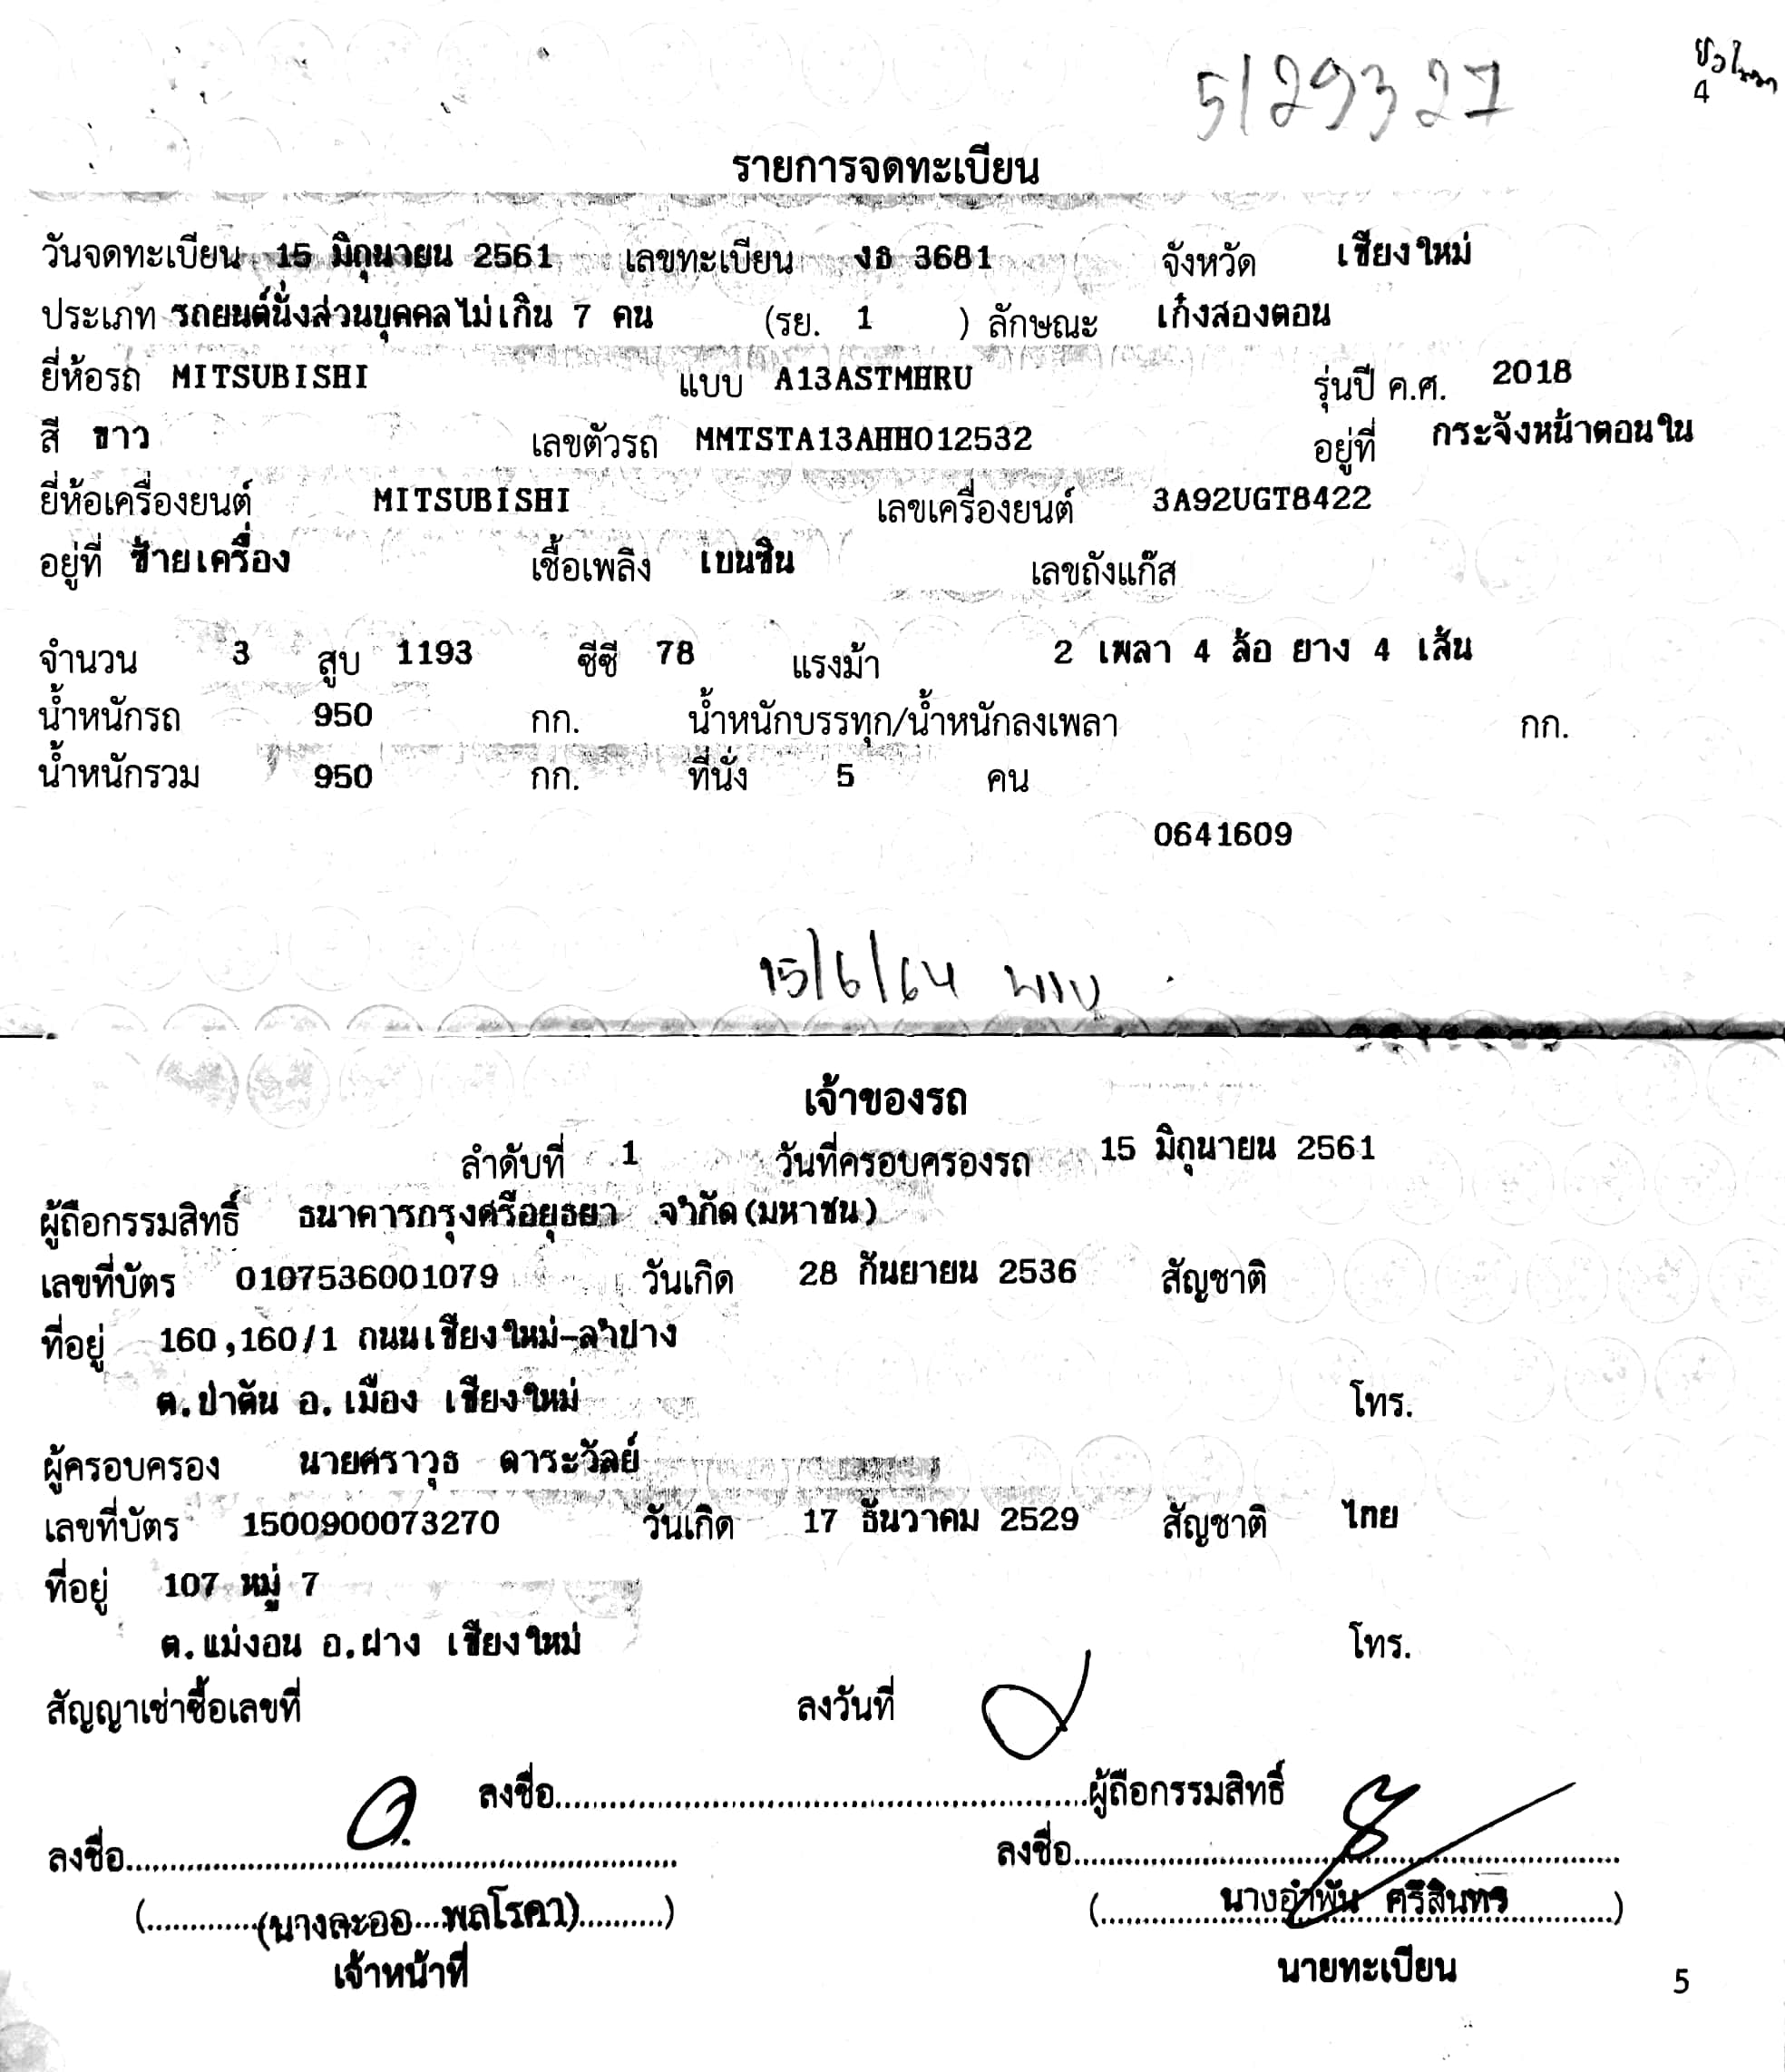 5/29327
4
รายการจดทะเบียน
วันจดทะเบียน 15 มิถุนายน 2561 เลขทะเบียน งอ 3681 จังหวัด เชียงใหม่
ประเภท รถยนต์นั่งส่วนบุคคลไม่เกิน 7 คน (รย. 1 ) ลักษณะ เก๋งสองตอน
ยี่ห้อรถ MITSUBISHI แบบ A13ASTMHRU รุ่นปี ค.ศ. 2018
สี ขาว เลขตัวรถ MMTSTA13AHH012532 อยู่ที่ กระจังหน้าตอนใน
ยี่ห้อเครื่องยนต์ MITSUBISHI เลขเครื่องยนต์ 3A92UGT8422
อยู่ที่ ซ้ายเครื่อง เชื้อเพลิง เบนซิน เลขถังแก๊ส
จำนวน 3 สูบ 1193 ซีซี 78 แรงม้า 2 เพลา 4 ล้อ ยาง 4 เส้น
น้ำหนักรถ 950 กก. น้ำหนักบรรทุก/น้ำหนักลงเพลา กก.
น้ำหนักรวม 950 กก. ที่นั่ง 5 คน
0641609
15/6/64
เจ้าของรถ
ลำดับที่ 1 วันที่ครอบครองรถ 15 มิถุนายน 2561
ผู้ถือกรรมสิทธิ์ ธนาคารกรุงศรีอยุธยา จำกัด(มหาชน)
เลขที่บัตร 0107536001079 วันเกิด 28 กันยายน 2536 สัญชาติ
ที่อยู่ 160,160/1 ถนนเชียงใหม่-ลำปาง
ต.ป่าตัน อ.เมือง เชียงใหม่ โทร.
ผู้ครอบครอง นายศราวุธ ดาระวัลย์
เลขที่บัตร 1500900073270 วันเกิด 17 ธันวาคม 2529 สัญชาติ ไทย
ที่อยู่ 107 หมู่ 7
ต.แม่งอน อ.ฝาง เชียงใหม่ โทร.
สัญญาเช่าซื้อเลขที่ ลงวันที่
ลงชื่อ....................ผู้ถือกรรมสิทธิ์
ลงชื่อ.................... ลงชื่อ....................
(....(นางละออ พลโรคา)....) (....นางอำพัน ศรีสินทร....)
เจ้าหน้าที่ นายทะเบียน
5